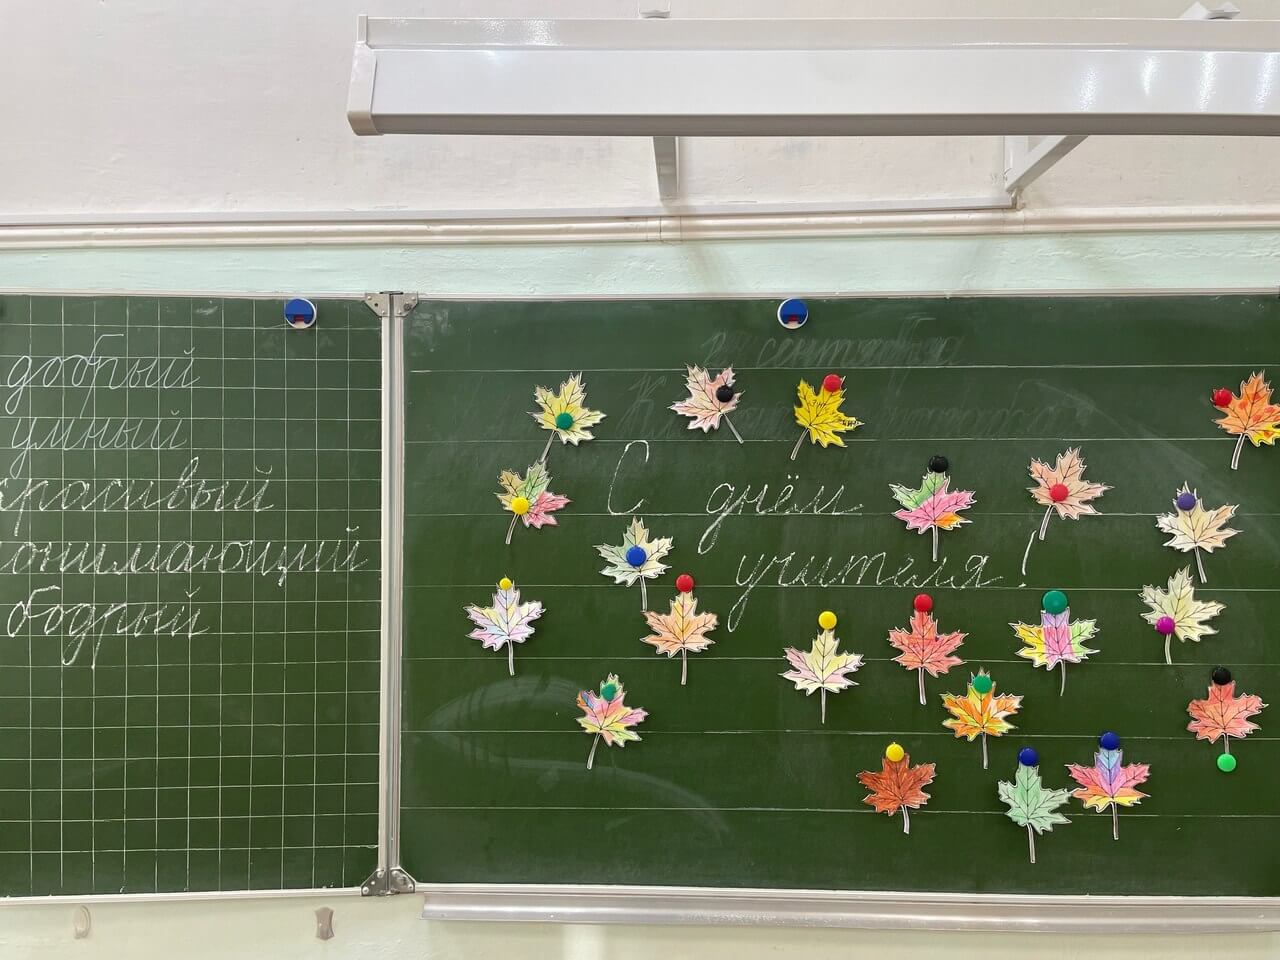 добрый
умный
красивый
онимающий
бодрый
сентября
С днём
учителя!